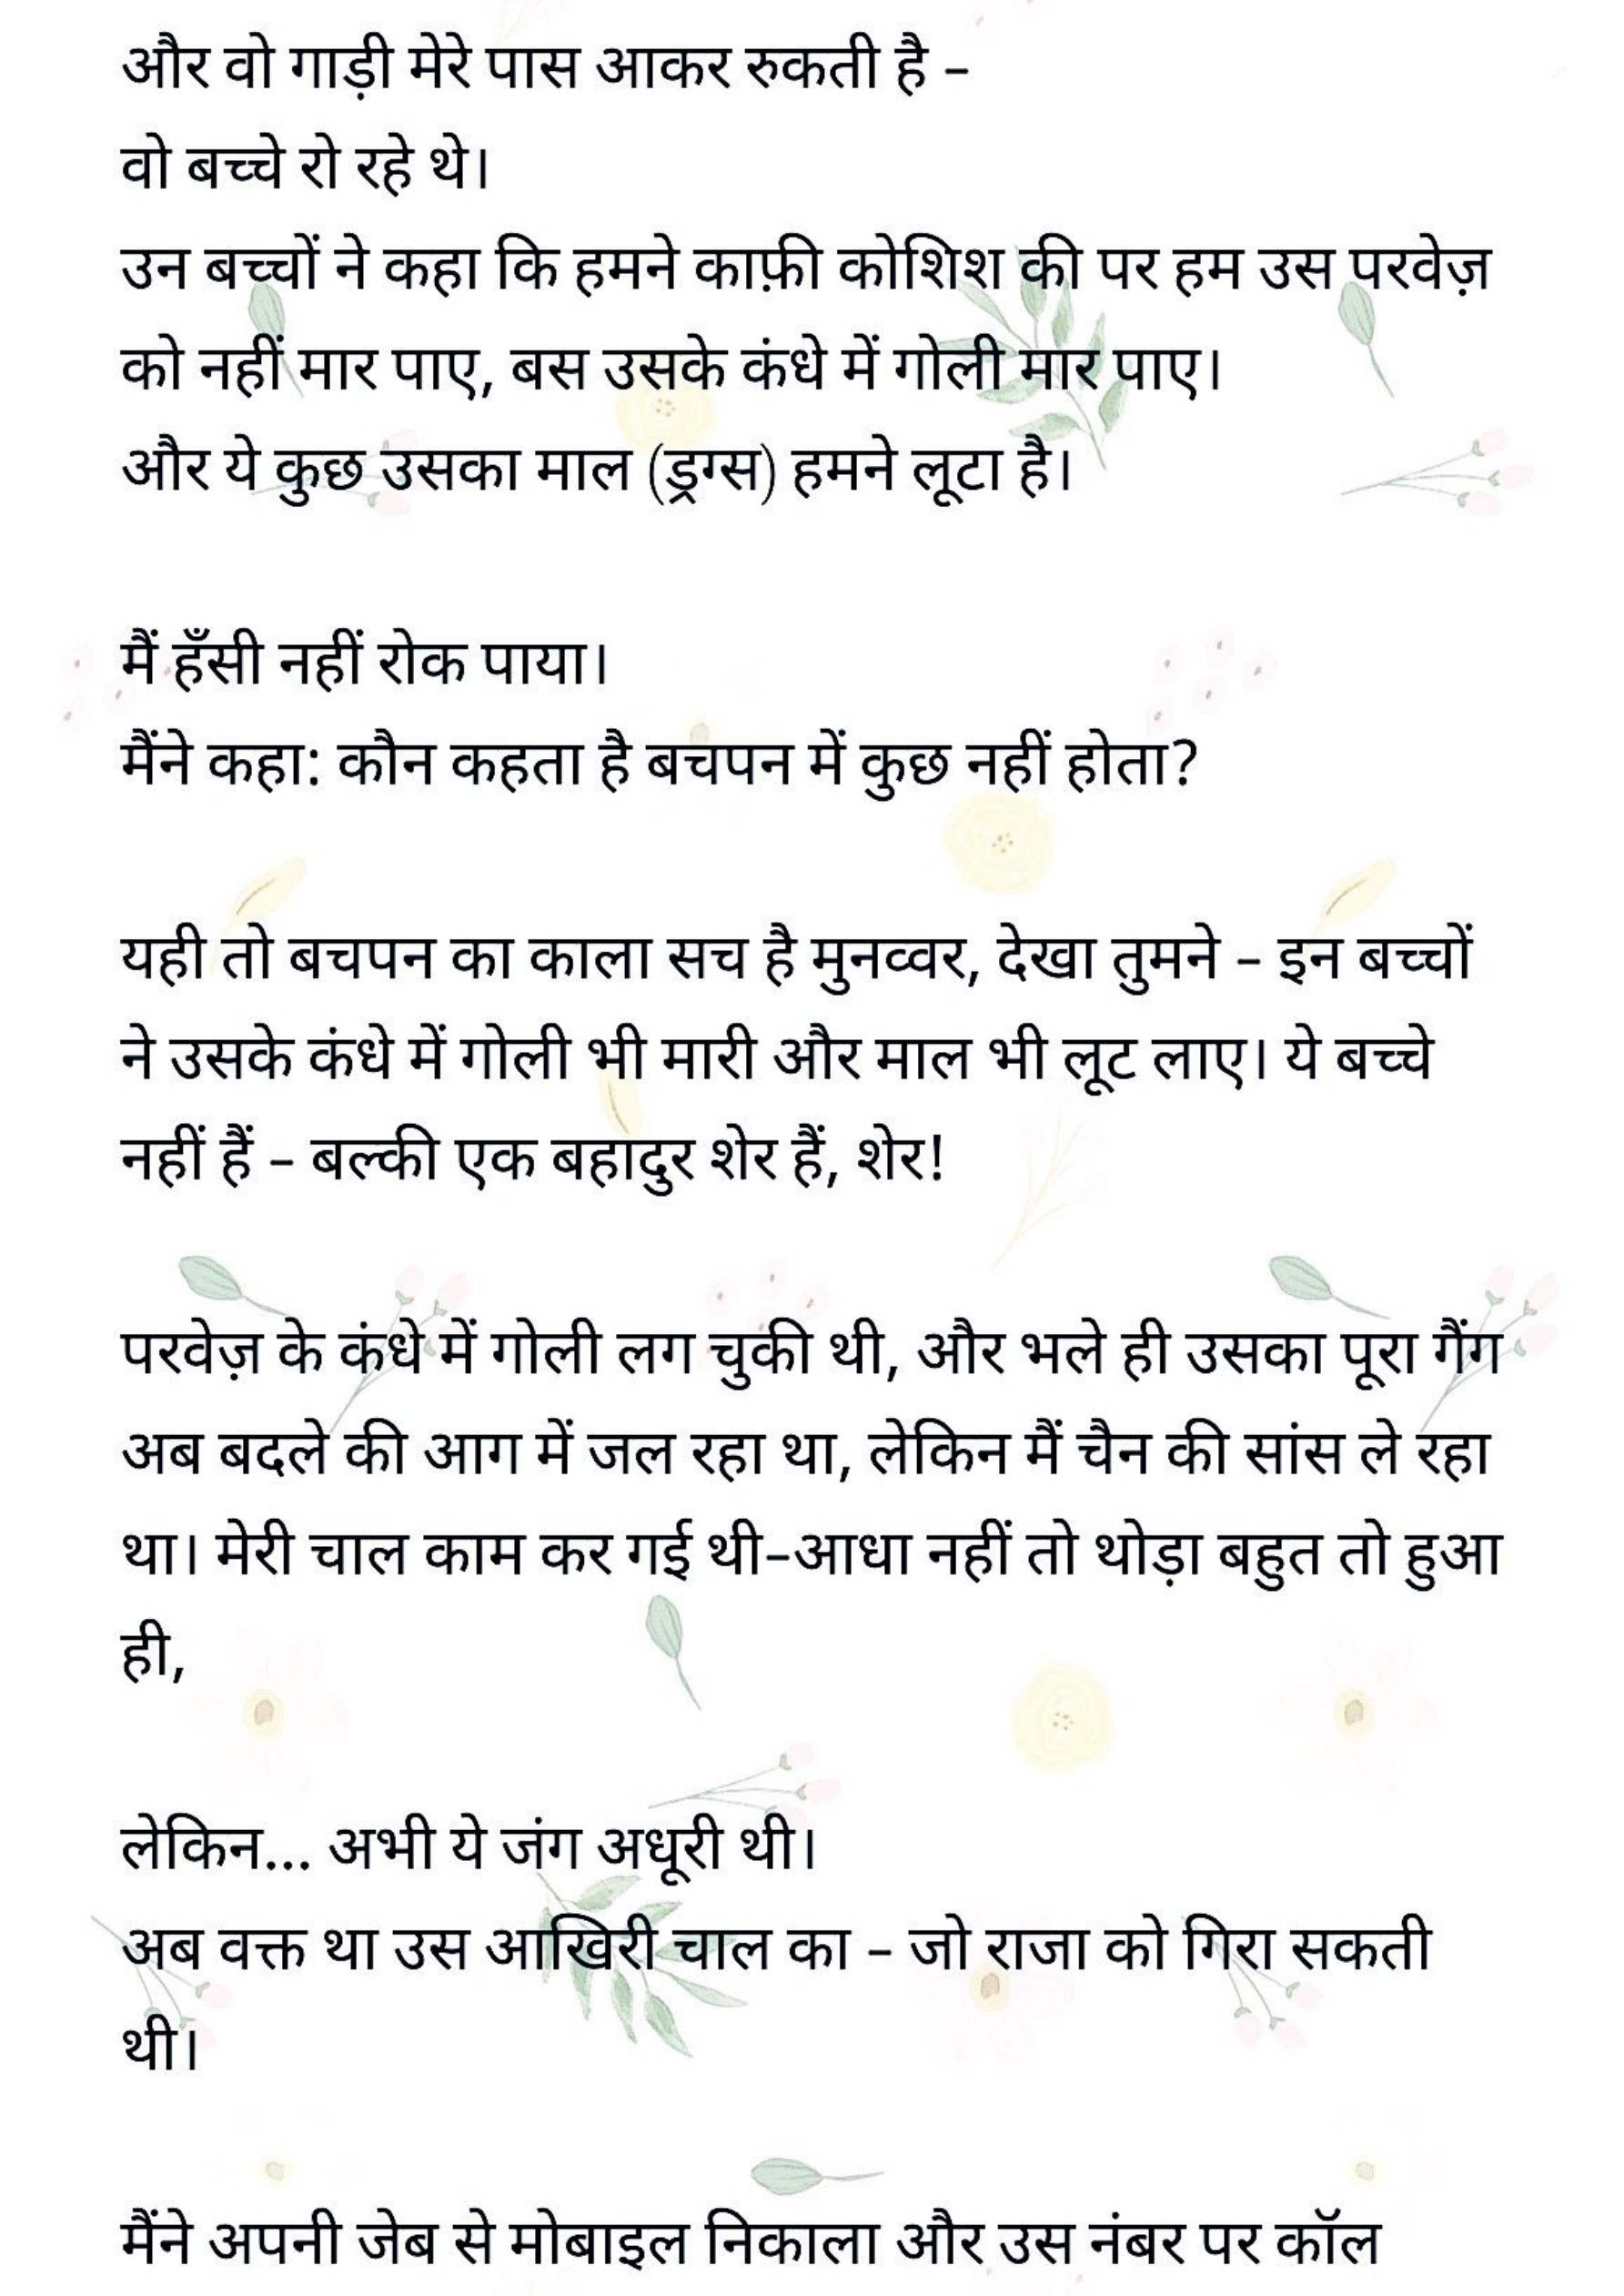 और वो गाड़ी मेरे पास आकर रुकती है –
वो बच्चे रो रहे थे।
उन बच्चों ने कहा कि हमने काफ़ी कोशिश की पर हम उस परवेज़
को नहीं मार पाए, बस उसके कंधे में गोली मार पाए।
और ये कुछ उसका माल (ड्रग्स) हमने लूटा है।
मैं हँसी नहीं रोक पाया।
मैंने कहा: कौन कहता है बचपन में कुछ नहीं होता?
यही तो बचपन का काला सच है मुनव्वर, देखा तुमने – इन बच्चों
ने उसके कंधे में गोली भी मारी और माल भी लूट लाए। ये बच्चे
नहीं हैं – बल्की एक बहादुर शेर हैं, शेर!
परवेज़ के कंधे में गोली लग चुकी थी, और भले ही उसका पूरा गैंग
अब बदले की आग में जल रहा था, लेकिन मैं चैन की सांस ले रहा
था। मेरी चाल काम कर गई थी–आधा नहीं तो थोड़ा बहुत तो हुआ
ही,
लेकिन... अभी ये जंग अधूरी थी।
अब वक्त था उस आखिरी चाल का – जो राजा को गिरा सकती
थी।
मैंने अपनी जेब से मोबाइल निकाला और उस नंबर पर कॉल